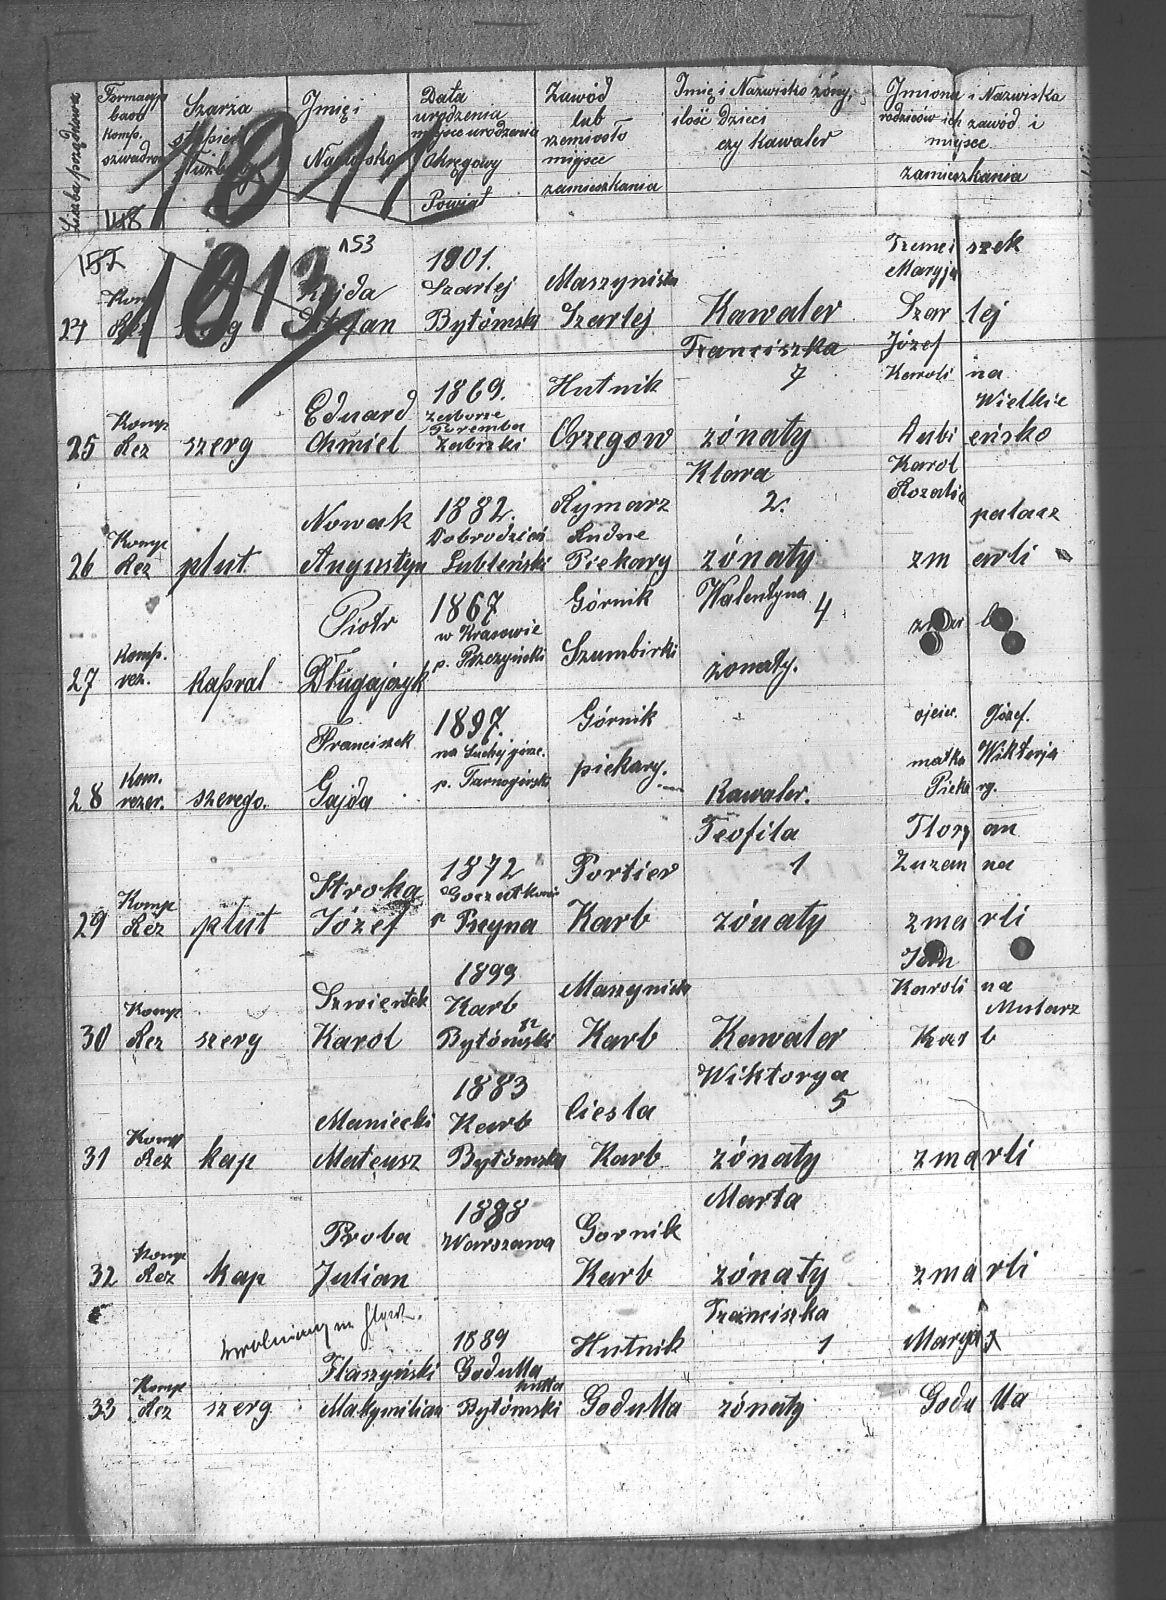 Liczba porządkowa
Formacya
baon
komp.
szwadron
Szarża
stopień
służbowy
Imię i
Nazwisko
Data
urodzenia
miejsce urodzenia
Okręgowy
Powiat
Zawód
lub
rzemiosło
miejsce
zamieszkania
Imię i Nazwisko żony,
ilość Dzieci
czy kawaler
Imiona i Nazwiska
rodziców ich zawód i
miejsce
zamieszkania
1011
148
152
1013
153
24 Komp Rez szerg
Kajda
Stefan
1901.
Szarlej
Bytómski
Maszynista
Szarlej
Kawaler
Franciszek
Maryja
Szarlej
25 Komp Rez szerg
Eduard
Chmiel
1869.
Zaborze
Poremba
Zabrski
Hutnik
Orzegow
Franciszka
7
zónaty
Józef
Karolina
Wielkie
Dubieńsko
26 Komp Rez plut
Nowak
Augustyn
1882.
Dobrodzień
Lubleński
Rymarz
Rudne
Piekary
Klara
2.
zónaty
Karol
Rozalia
palacz
zmarli
27 Komp. rez. kapral
Piotr
Długajczyk
1867
w Krasowie
p. Pszczyński
Górnik
Szumbirki
Walentyna 4
żonaty.
28 Kom. rezer. szerego.
Franciszek
Gajda
1897.
na Suchy górze.
p. Tarnogórski
Górnik
piekary.
Kawaler.
ojciec. Józef.
matka Wiktorja
Piekary.
29 Komp Rez plut
Stroka
Józef
1872
p Pszyna
Portier
Karb
Teofila
1
zónaty
Floryan
Zuzanna
zmarli
30 Komp Rez szerg
Szwientek
Karol
1899
Karb
Bytómski
Maszynista
Karb
Kawaler
Jan
Karolina
Mularz
Karb
31 Komp Rez kap
Maniecki
Mateusz
1883
Karb
Bytómski
Ciesla
Karb
Wiktorya
5
zónaty
zmarli
32 Komp Rez kap
Proba
Julian
1888
Warszawa
Gornik
Karb
Marta
zónaty
zmarli
33 Komp Rez szerg
Flaszyński
Maksymilian
1889
Godulla
hutta
Bytómski
Hutnik
Godulla
Franciszka
1
zónaty
Marya
Godulla